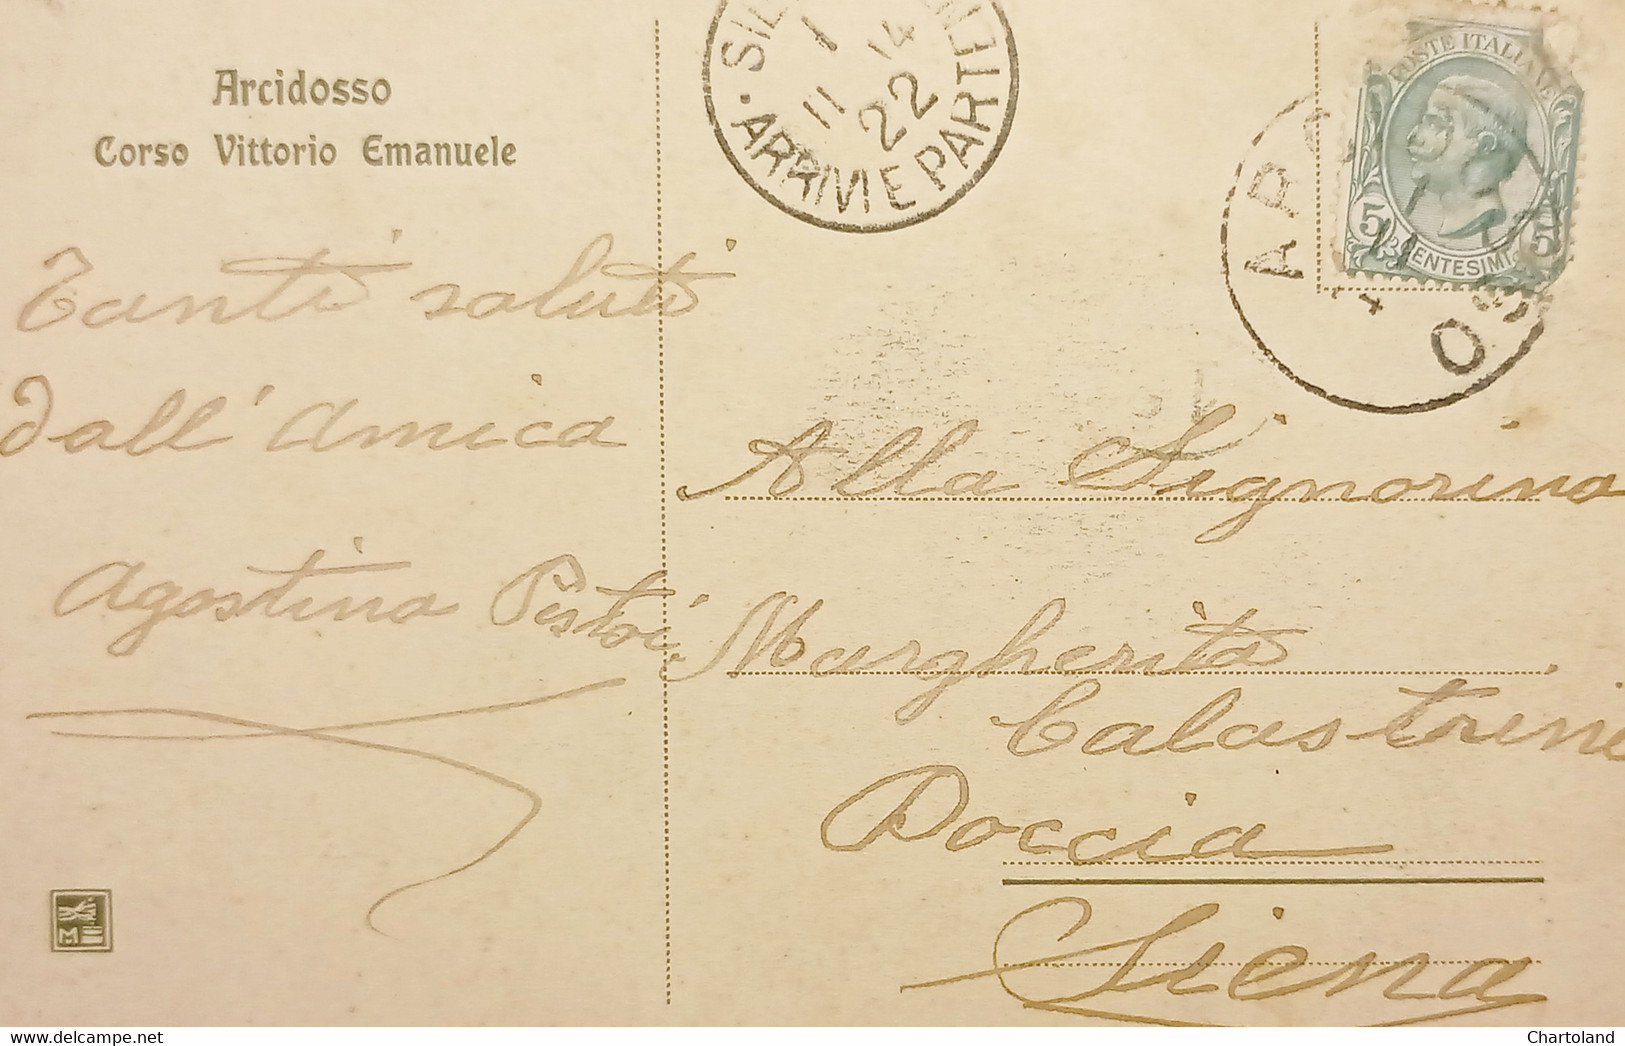 Arcidosso
Corso Vittorio Emanuele
Tanti saluti
dall'Amica
Agostina Pistoi.
ARRIVI E PARTENZ
1
14
11
22
POSTE ITALIANE
5
5
CENTESIMI
ARC
OSSO
11
14
Alla Signorina
Margherita
Calastrini
Doccia
Siena
M
www.delcampe.net
Chartoland